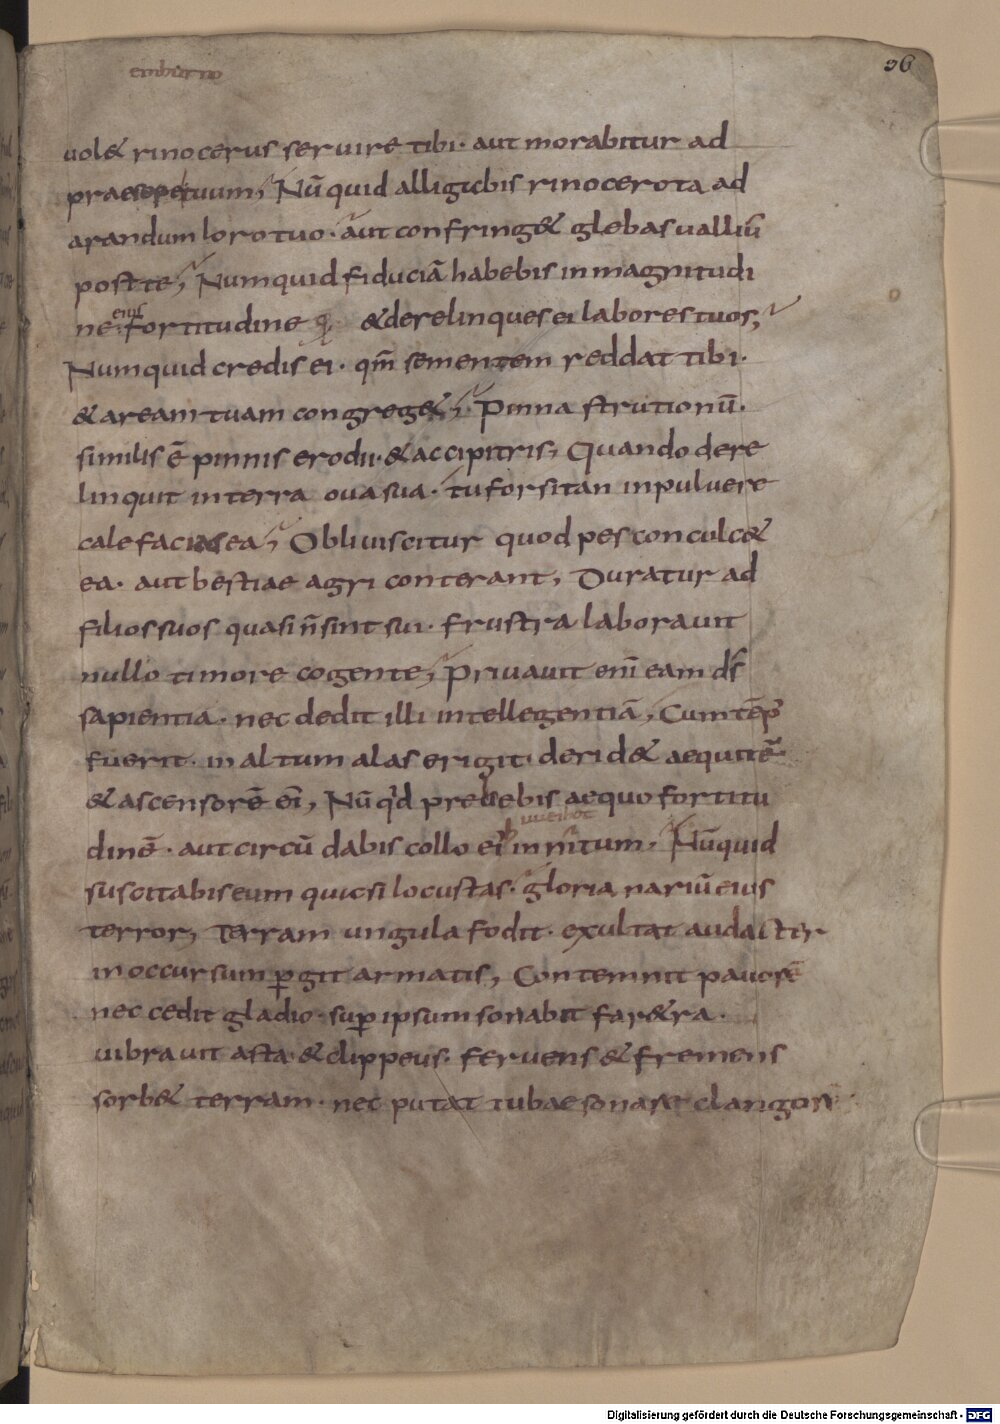 36
uol& rinocerus seruire tibi· aut morabitur ad
praesepe tuum; Nū quid alligabis rinocerota ad
arandum loro tuo· aut confring& glebas ualliū
post te; Numquid fiduciā habebis in magnitudi
ne eius fortitudine & derelinques ei labores tuos;
Numquid credis ei· qm̄ sementem reddat tibi·
& aream tuam congreg&; Pinna strutionū·
similis ē pinnis erodii· & accipitris; Quando dere
linquit in terra oua sua· tu forsitan in puluere
calefacies ea; Obliuiscitur quod pes conculc&
ea· aut bestiae agri conterant; Duratur ad
filios suos quasi n̄ sint sui· frustra laborauit
nullo timore cogente; Priuauit enī eam ds̄
sapientia· nec dedit illi intellegentiā; Cum tēp
fuerit· in altum alas erigit· derid& aequitē
& ascensorē eī; Nū qd prebebis aequo fortitu
dinē· aut circū dabis collo eī innitum; Nūquid
suscitabis eum quasi locustas· gloria nariū eius
terror; Terram ungula fodit· exultat audacter
in occursum pgit armatis; Contemnit pauorē
nec cedit gladio· sup ipsum sonabit far&ra·
uibrauit asta & clippeus· feruens & fremens
sorb& terram· nec putat tubae sonare clangorē
Digitalisierung gefördert durch die Deutsche Forschungsgemeinschaft - DFG